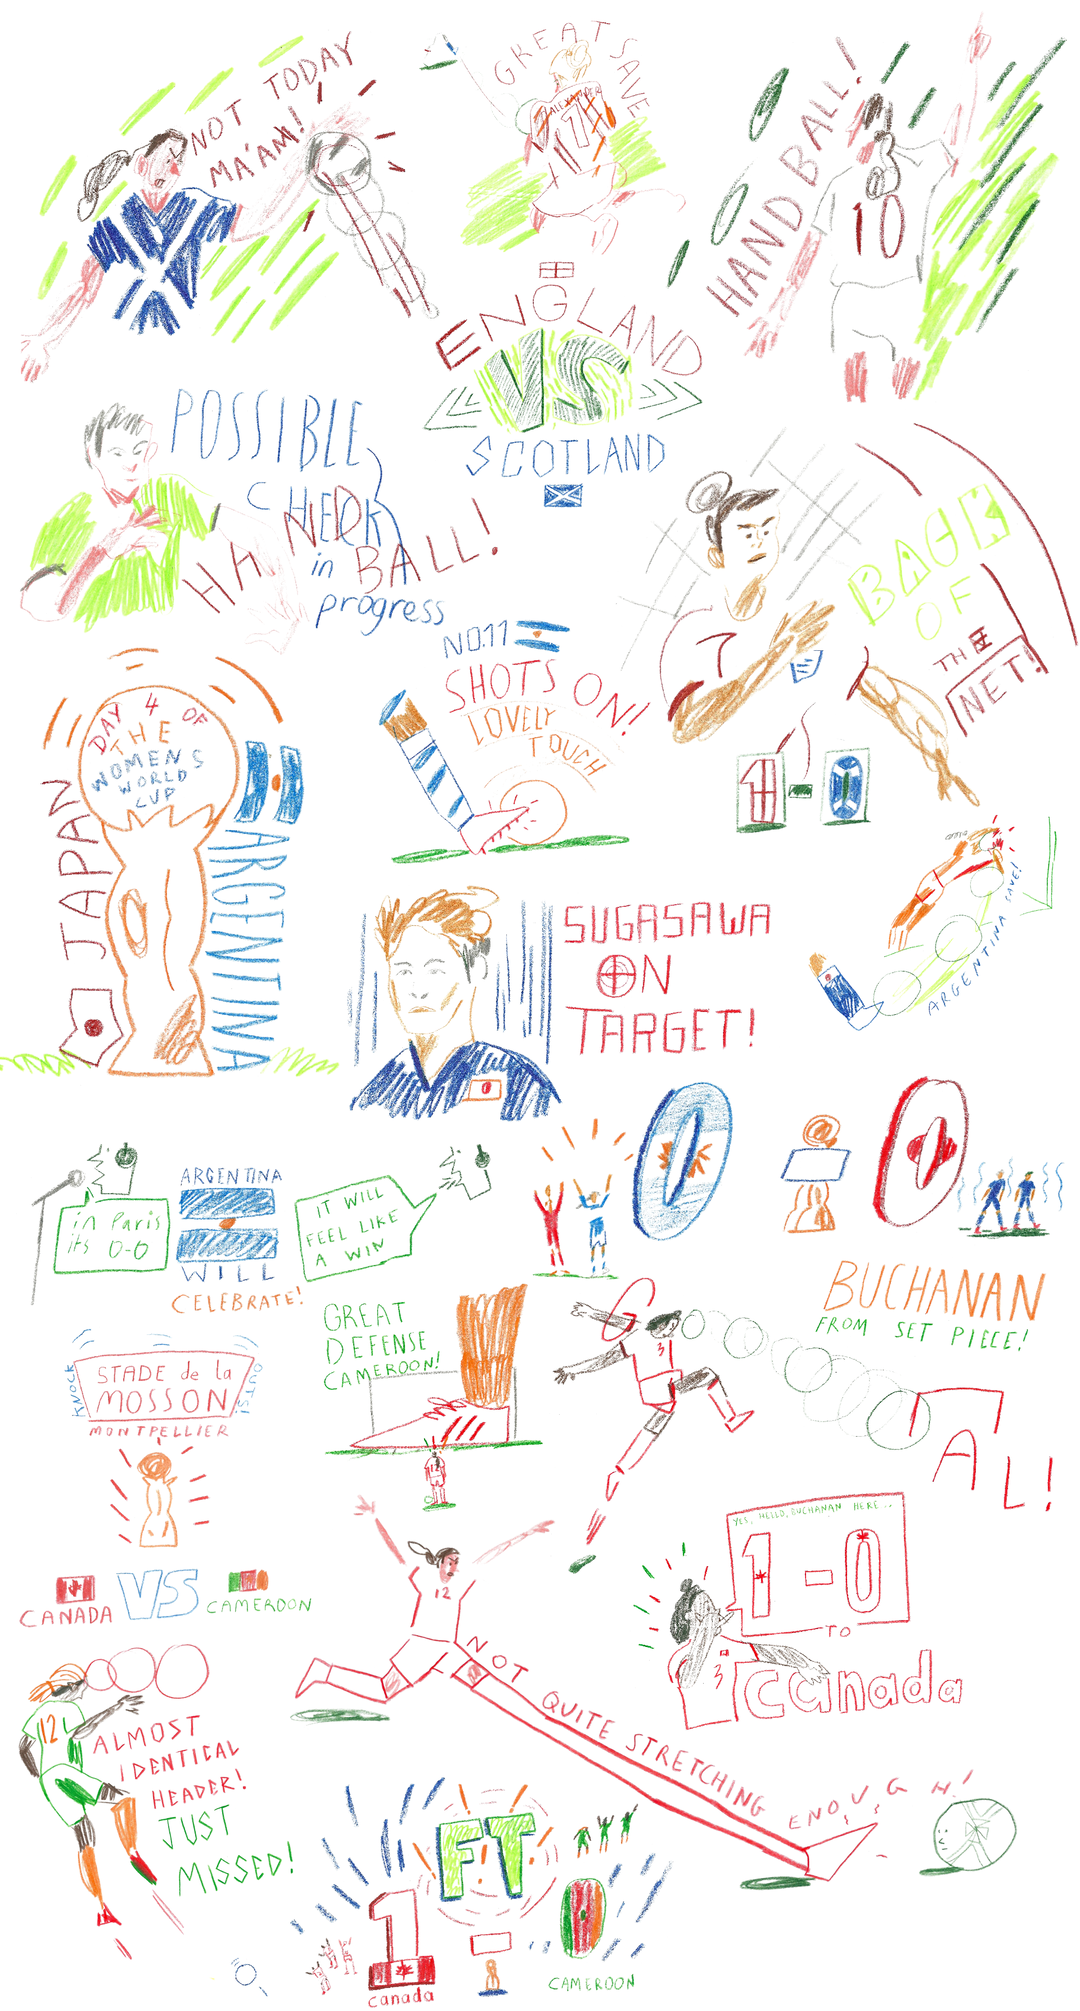 NOT TODAY
MA'AM!
GREAT SAVE
ALEXANDER
1
HAND BALL!
10
ENGLAND
VS
SCOTLAND
POSSIBLE
CHECK
in
progress
HAND BALL!
BACK
OF
THE
NET!
7
1 - 0
NO.11
SHOTS ON!
LOVELY
TOUCH
DAY 4 OF
THE
WOMENS
WORLD
CUP
JAPAN
ARGENTINA
SUGASAWA
ON
TARGET!
ARGENTINA SAVE!
0 0
in Paris
its 0-0
ARGENTINA
WILL
CELEBRATE!
IT WILL
FEEL LIKE
A WIN
BUCHANAN
FROM SET PIECE!
GREAT
DEFENSE
CAMEROON!
KNOCK
STADE de la
MOSSON
OUTS!
MONTPELLIER
3
GOAL!
12
YES, HELLO, BUCHANAN HERE...
1-0
TO
canada
3
CANADA
VS
CAMEROON
12
NOT QUITE STRETCHING ENOUGH!
12
ALMOST
IDENTICAL
HEADER!
JUST
MISSED!
FT
1 - 0
canada
CAMEROON